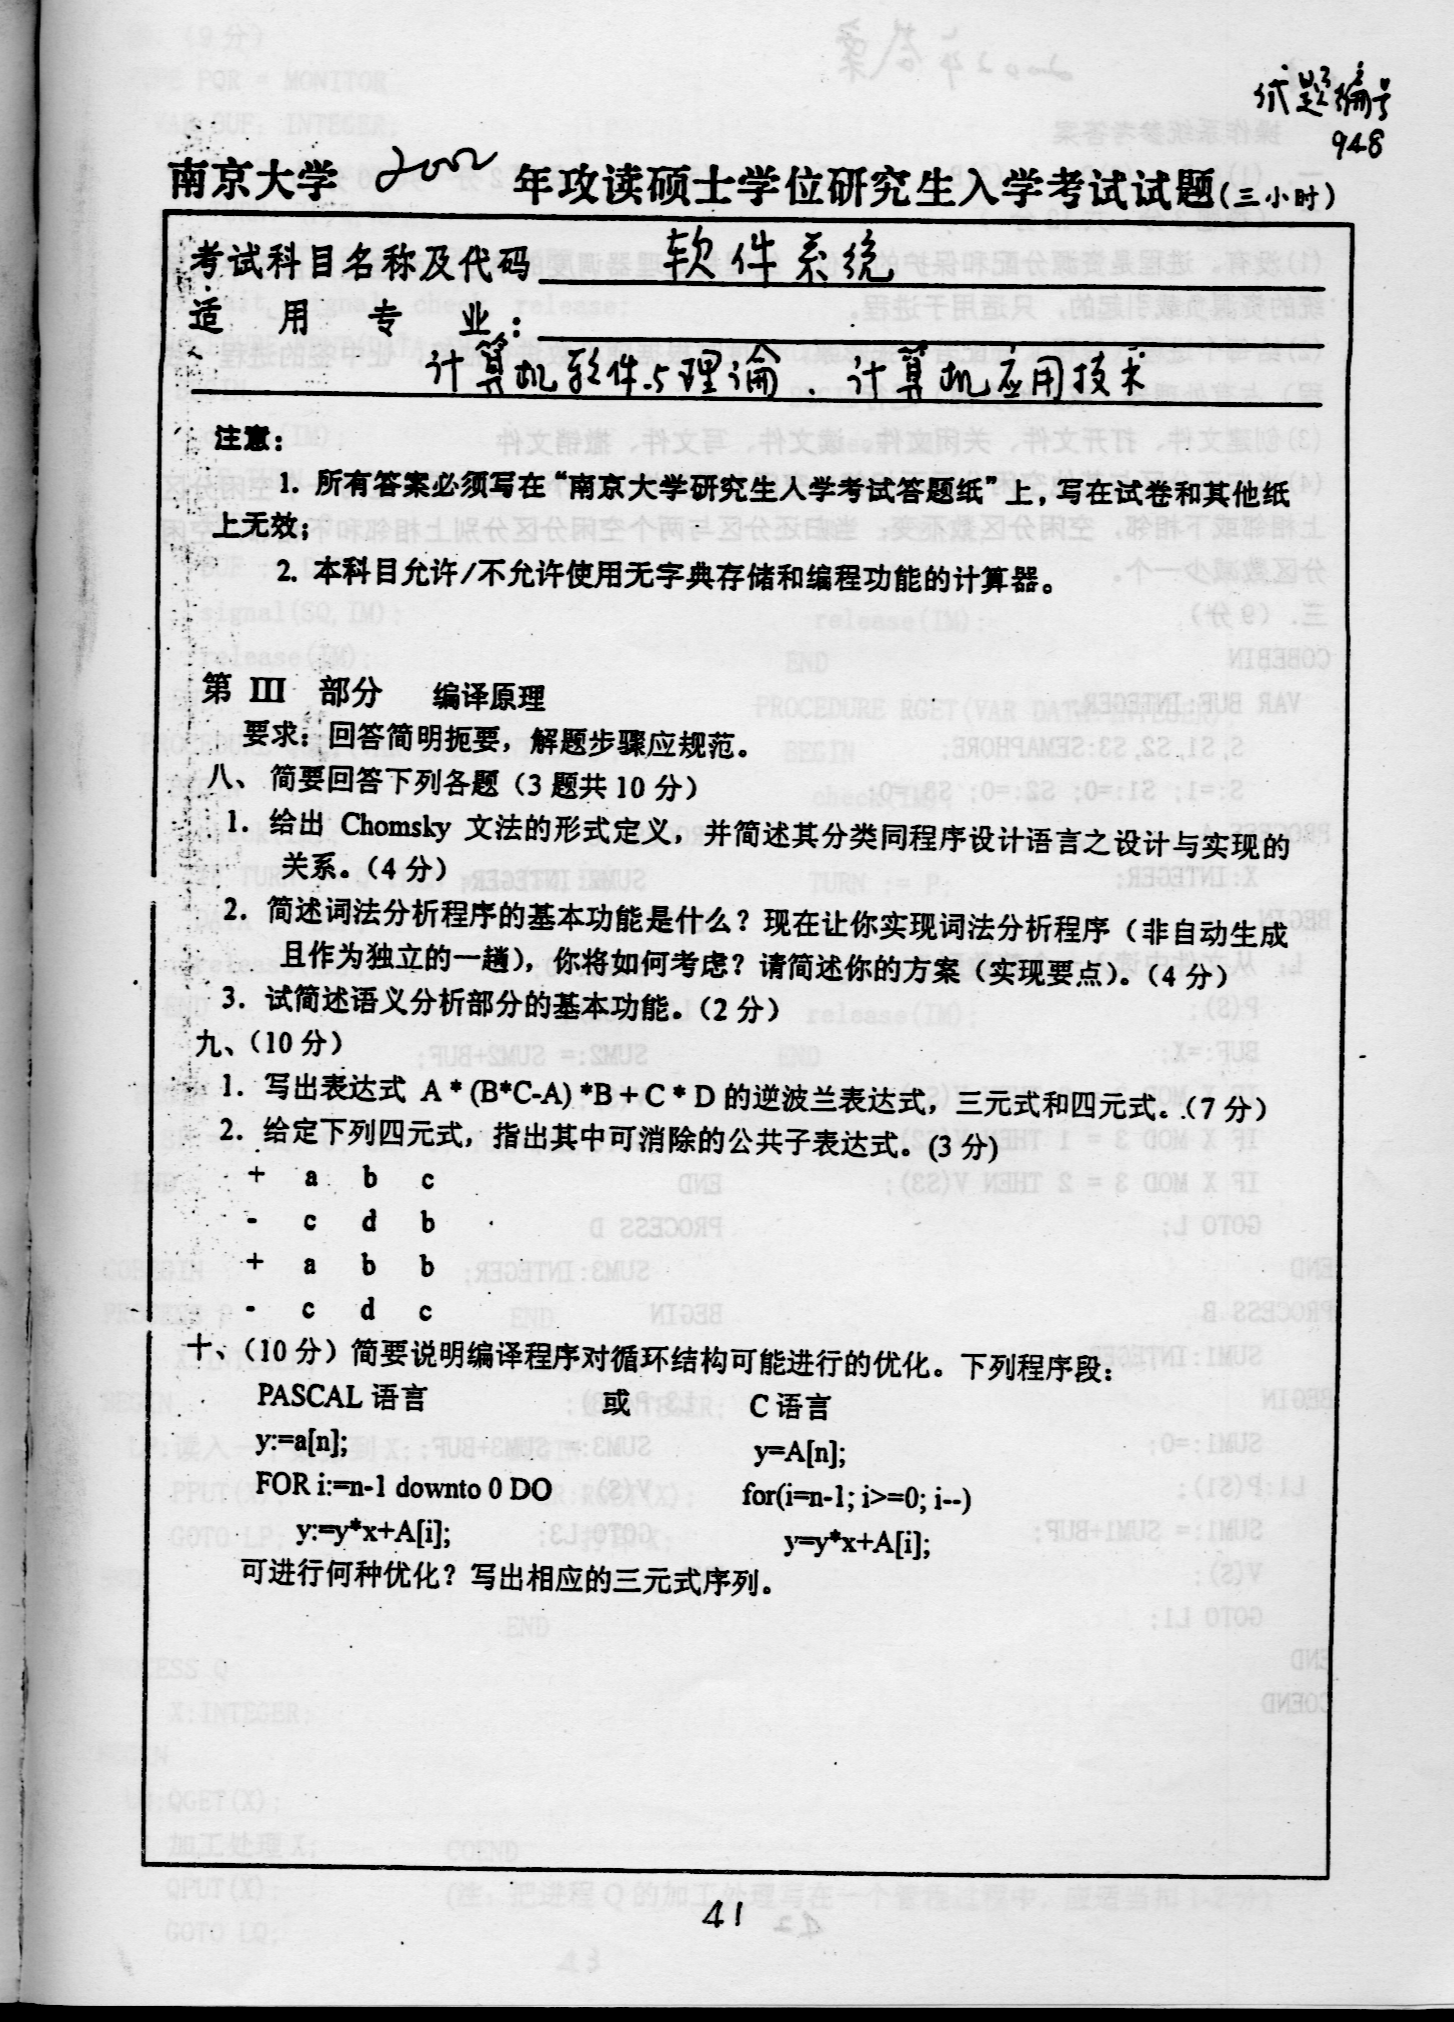 试题编号
948
南京大学 2002 年攻读硕士学位研究生入学考试试题(三小时)
考试科目名称及代码 软件系统
适用专业：
计算机软件与理论、计算机应用技术
注意：
1. 所有答案必须写在“南京大学研究生入学考试答题纸”上，写在试卷和其他纸
上无效；
2. 本科目允许/不允许使用无字典存储和编程功能的计算器。
第 III 部分 编译原理
要求：回答简明扼要，解题步骤应规范。
八、 简要回答下列各题（3 题共 10 分）
1. 给出 Chomsky 文法的形式定义，并简述其分类同程序设计语言之设计与实现的
关系。（4 分）
2. 简述词法分析程序的基本功能是什么？现在让你实现词法分析程序（非自动生成
且作为独立的一趟），你将如何考虑？请简述你的方案（实现要点）。（4 分）
3. 试简述语义分析部分的基本功能。（2 分）
九、（10 分）
1. 写出表达式 A * (B*C-A) *B + C * D 的逆波兰表达式，三元式和四元式。（7 分）
2. 给定下列四元式，指出其中可消除的公共子表达式。(3 分)
+ a b c
- c d b
+ a b b
- c d c
十、（10 分）简要说明编译程序对循环结构可能进行的优化。下列程序段：
PASCAL 语言 或 C 语言
y:=a[n]; y=A[n];
FOR i:=n-1 downto 0 DO for(i=n-1; i>=0; i--)
y:=y*x+A[i]; y=y*x+A[i];
可进行何种优化？写出相应的三元式序列。
41